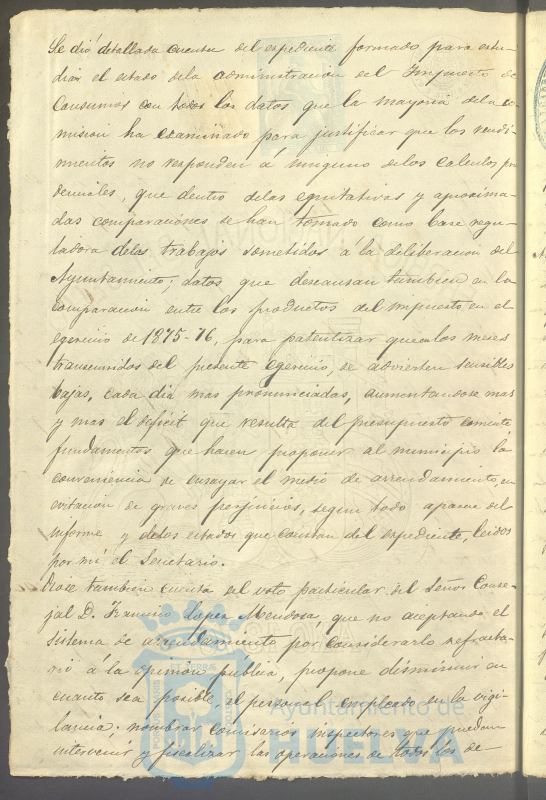 Se dió detallada cuenta del expediente formado para estu-
diar el estado dela administracion del Impuesto de
Consumos con todos los datos que la mayoria dela co-
mision ha examinado para justificar que los rendi-
mientos no responden á ninguno delos calculos pru
denciales, que dentro delas equitativas y aproxima-
das comparaciones se han tomado como base regu-
ladora delos trabajos sometidos á la deliberacion del
Ayuntamiento; datos que descansan tambien en la
comparacion entre los productos del impuesto en el
egercicio de 1875-76, para patentizar que en los meses
transcurridos del presente egercicio, se advierten sensibles
bajas, cada dia mas pronunciadas, aumentandose mas
y mas el déficit que resulta del presupuesto corriente,
fundamentos que hacen proponer al municipio la
conveniencia de ensayar el medio de arrendamiento, en
evitacion de graves perjuicios, segun todo aparece del
informe y delos estados que constan del expediente, leidos
por mí el Secretario.
Diose tambien cuenta del voto particular del Señor Conce-
jal D. Francisco Lopez Mendosa, que no aceptando el
sistema de arrendamiento por considerarlo refracta-
rio á la opinion pública, propone disminuir en
cuanto sea posible, el personal empleado en la vigi-
lancia; nombrar comisarios inspectores que puedan
intervenir y fiscalizar las operaciones de todos los de-
Ayuntamiento de
HUELVA